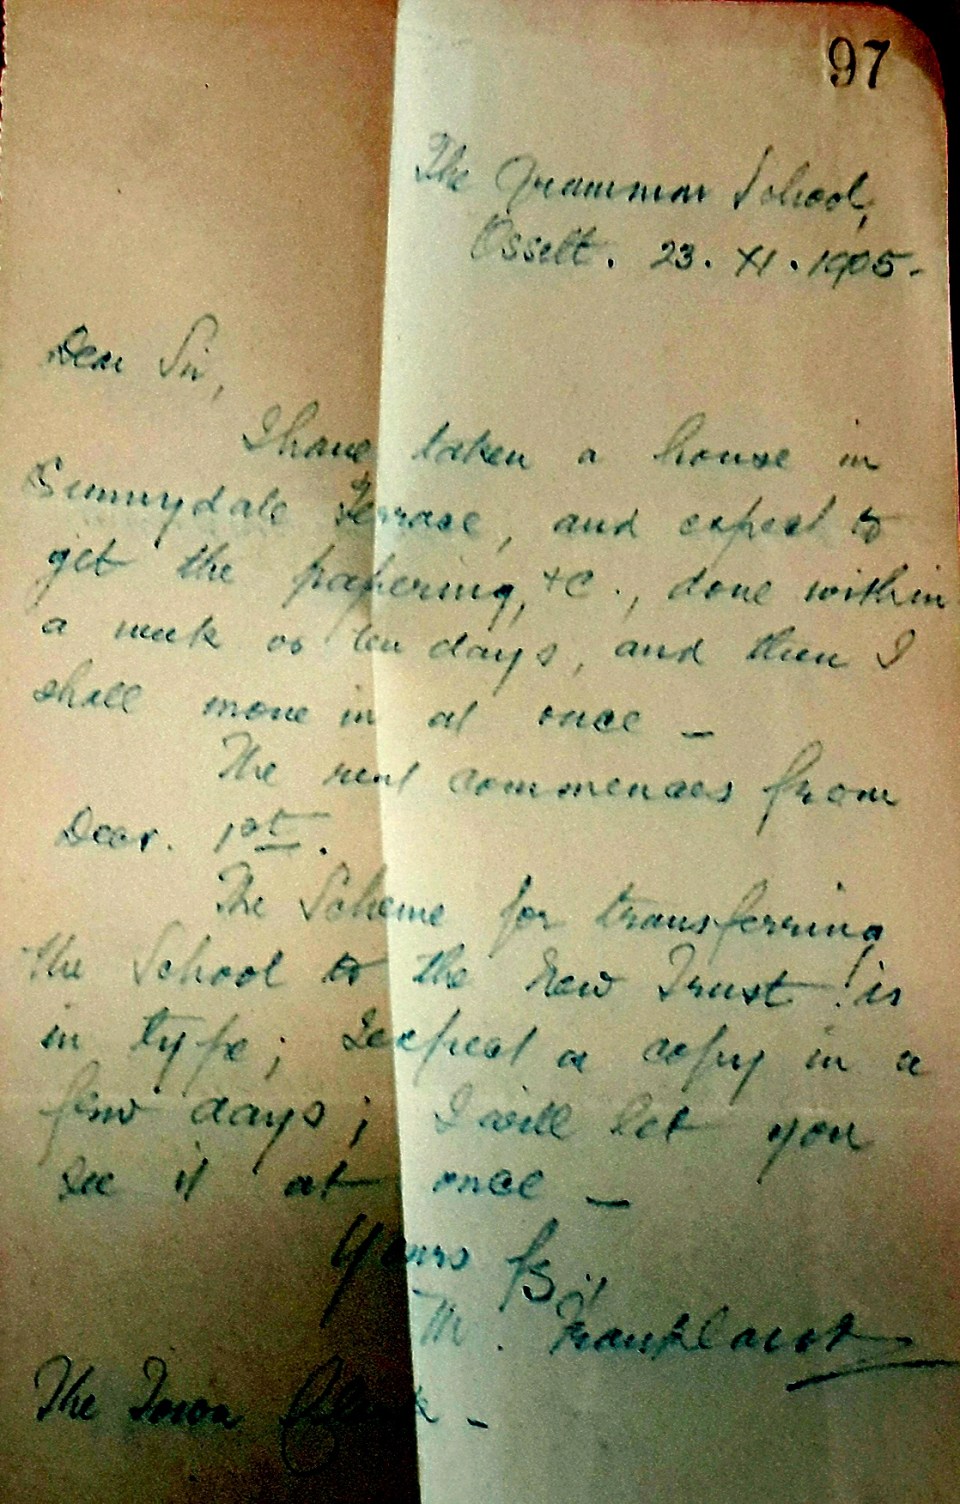 97
The Grammar School,
Ossett. 23. XI. 1905.
Dear Sir,
I have taken a house in
Sunnydale Terrace, and expect to
get the papering, +c., done within
a week or ten days, and then I
shall move in at once -
The rent commences from
Decr. 1st.
The Scheme for transferring
the School to the New Trust is
in type; I expect a copy in a
few days; I will let you
see it at once -
Yours fy,
M. Frankland
The Town Clerk -